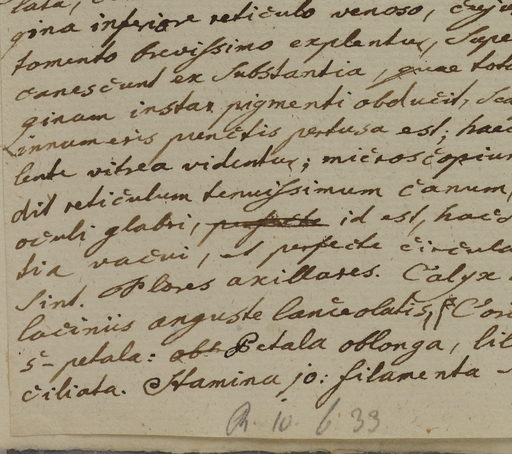 lata,
gina inferiore reticulo venoso, cuju
tomento brevissimo explentur, Supe
canescunt ex Substantia, quae tota
ginam instar pigmenti obducit, Sca
innumeris punctis pertusa est; haec
lente vitrea videntur; microscopium
dit reticulum tenuissimum canum,
oculi glabri, perfecte id est, hacc
tia vacui, et perfecte circula
sint. Flores axillares. Calyx
laciniis anguste lanceolatis, Coro
5-petala: obt Petala oblonga, lib
ciliata. Stamina 10: filamenta
R. 10. 6. 33